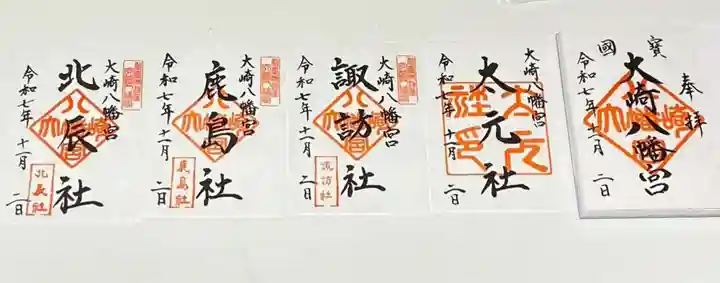 大崎八幡宮
北辰社
令和七年 十一月 二日
北辰社
大崎八幡宮
鹿島社
令和七年 十一月 二日
鹿島社
大崎八幡宮
諏訪社
令和七年 十一月 二日
諏訪社
大崎八幡宮
太元社
令和七年 十一月 二日
奉拝
國寶
大崎八幡宮
令和七年 十一月 二日